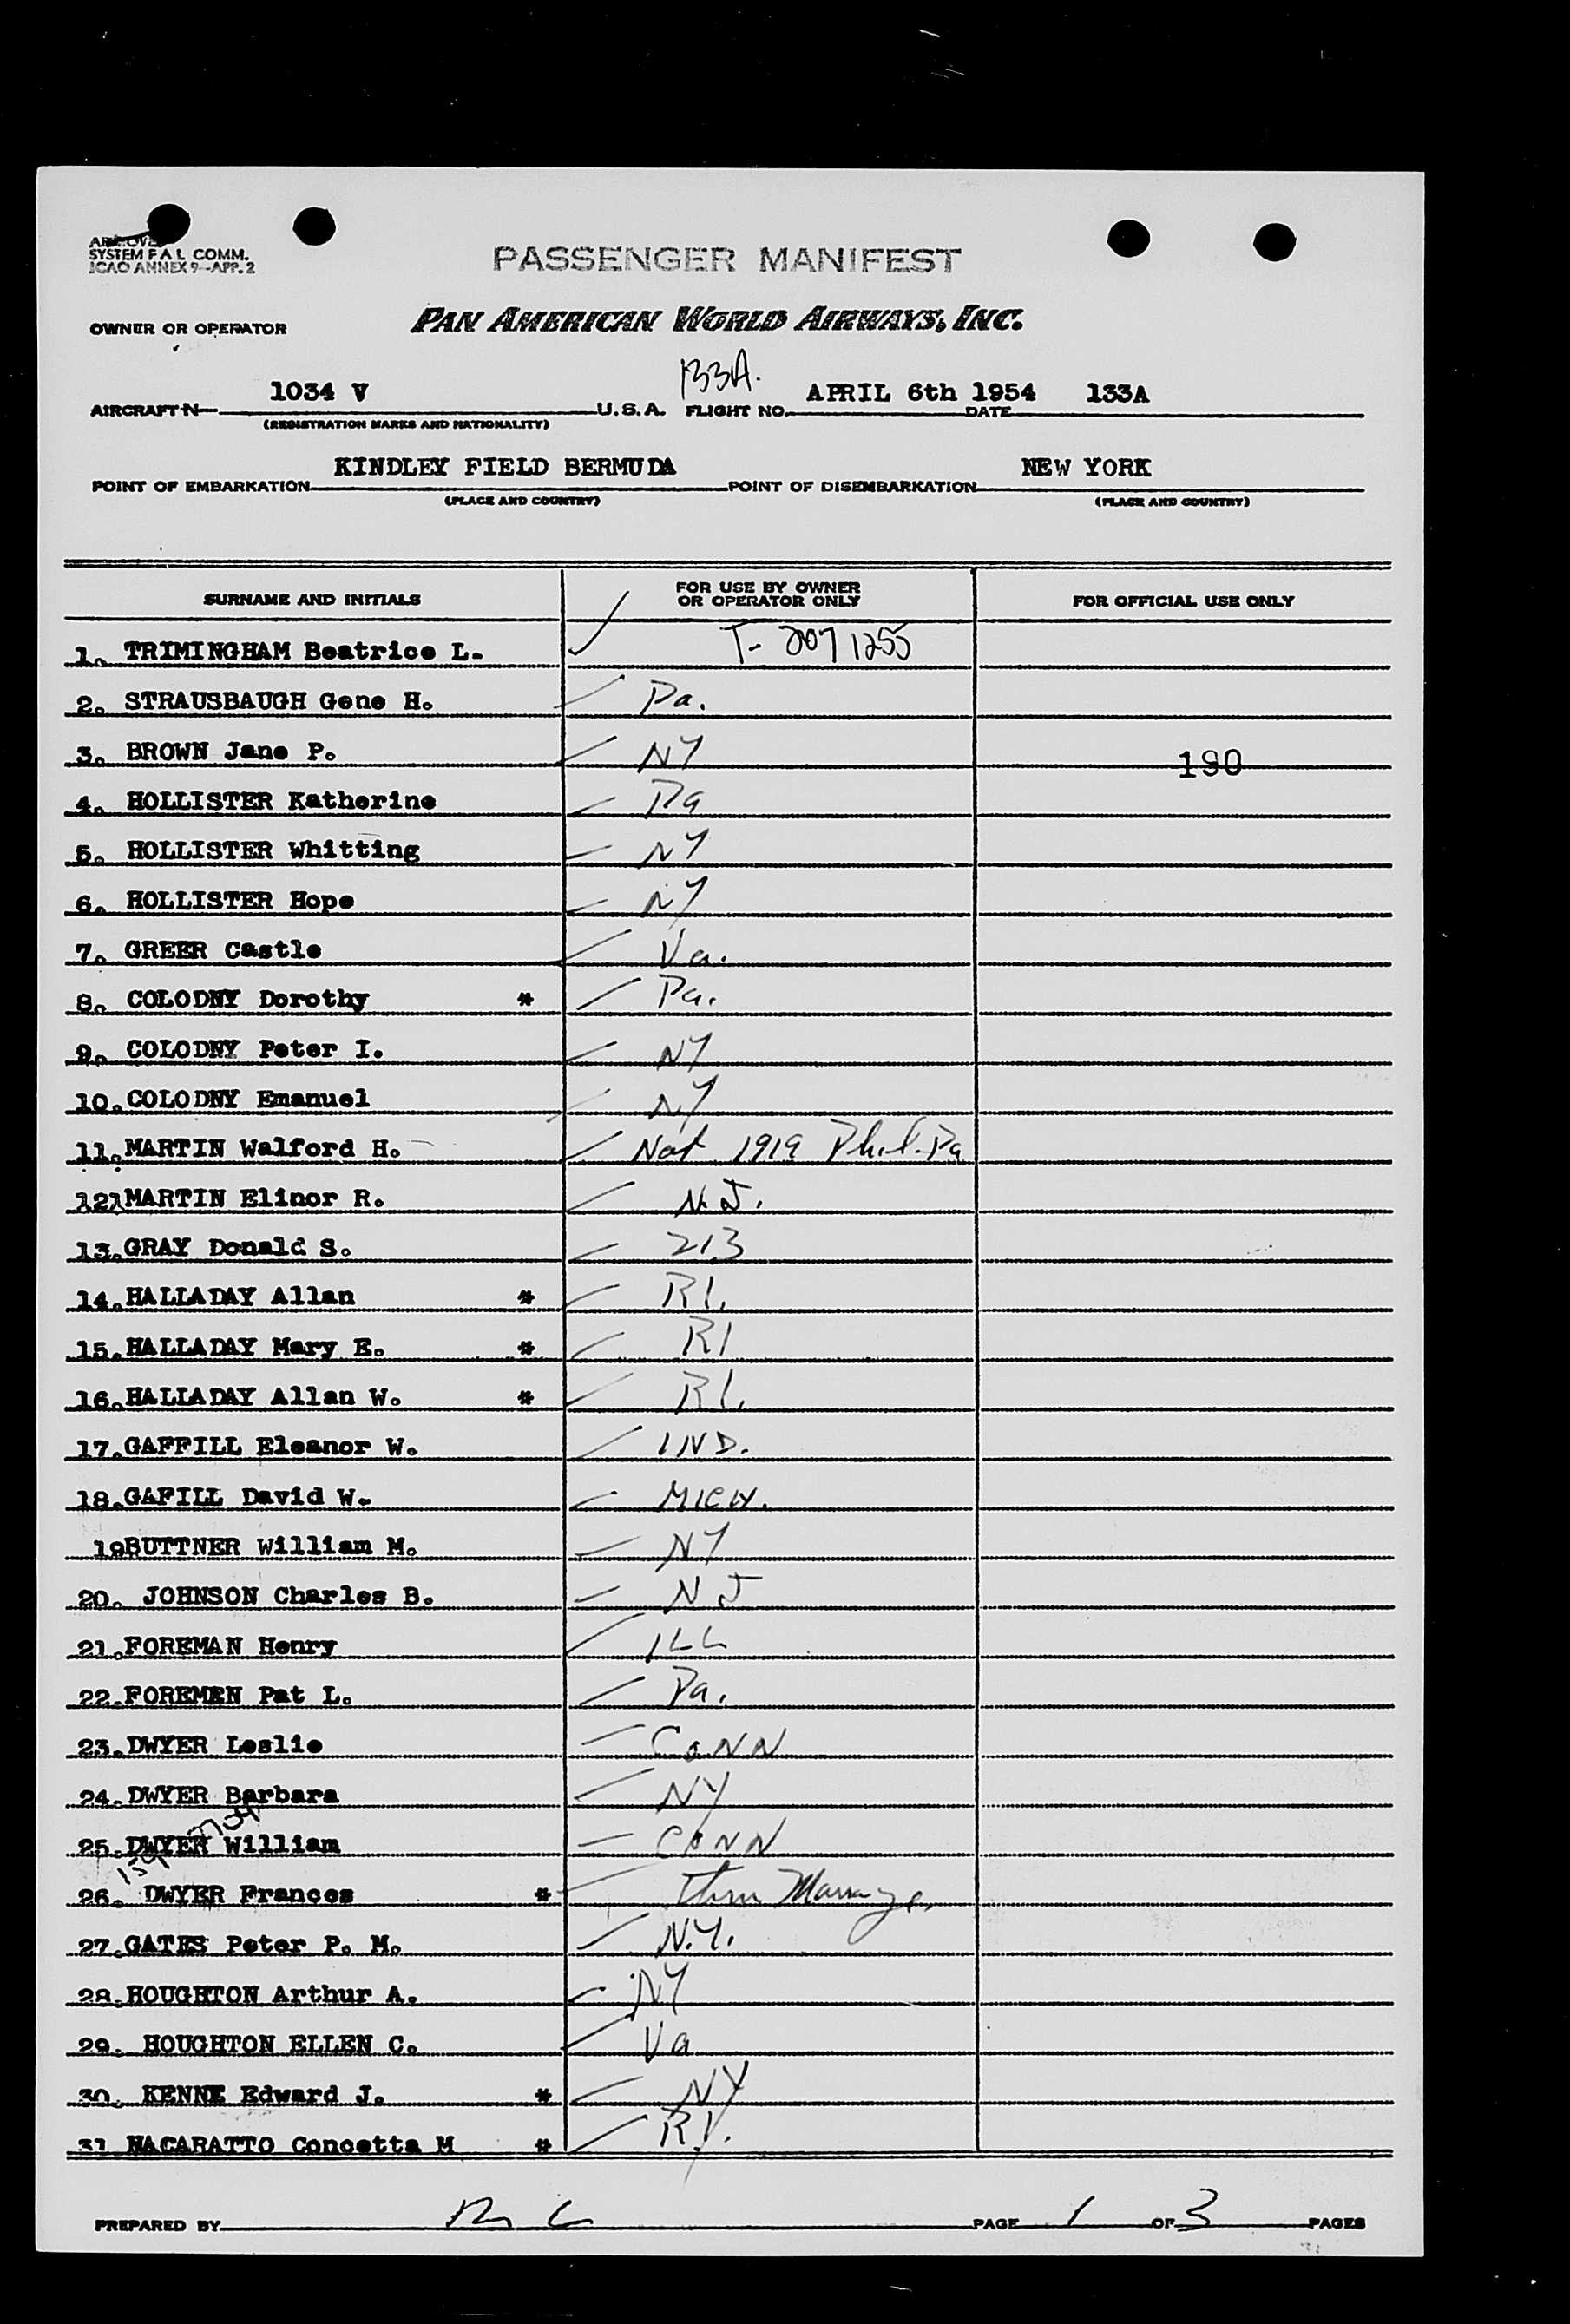 APPROVED
SYSTEM F A L COMM.
ICAO ANNEX 9-APP. 2
PASSENGER MANIFEST
OWNER OR OPERATOR PAN AMERICAN WORLD AIRWAYS, INC.
133A.
AIRCRAFT N- 1034 V U.S.A. FLIGHT NO. APRIL 6th 1954 DATE 133A
(REGISTRATION MARKS AND NATIONALITY)
POINT OF EMBARKATION KINDLEY FIELD BERMUDA POINT OF DISEMBARKATION NEW YORK
(PLACE AND COUNTRY) (PLACE AND COUNTRY)
SURNAME AND INITIALS FOR USE BY OWNER OR OPERATOR ONLY FOR OFFICIAL USE ONLY
1. TRIMINGHAM Beatrice L. T- 2071255
2. STRAUSBAUGH Gene H. Pa.
3. BROWN Jane P. NY 190
4. HOLLISTER Katherine Pa
5. HOLLISTER Whitting NY
6. HOLLISTER Hope NY
7. GREER Castle Va.
8. COLODNY Dorothy * Pa.
9. COLODNY Peter I. NY
10. COLODNY Emanuel NY
11. MARTIN Walford H. Nat 1919 Phil. Pa
12. MARTIN Elinor R. N.J.
13. GRAY Donald S. 213
14. HALLADAY Allan * RI.
15. HALLADAY Mary E. * RI
16. HALLADAY Allan W. * RI.
17. GAFFILL Eleanor W. IND.
18. GAFILL David W. MICH.
19 BUTTNER William M. NY
20. JOHNSON Charles B. NJ
21. FOREMAN Henry ILL
22. FOREMEN Pat L. Pa.
23. DWYER Leslie CONN
24. DWYER Barbara NY
25. DWYER William CONN
26. DWYER Frances * thru Marriage.
27. GATES Peter P. M. N.Y.
28. HOUGHTON Arthur A. NY
29. HOUGHTON ELLEN C. Va
30. KENNE Edward J. * NY
31 NACARATTO Concetta M * R.I.
PREPARED BY PAGE 1 OF 3 PAGES